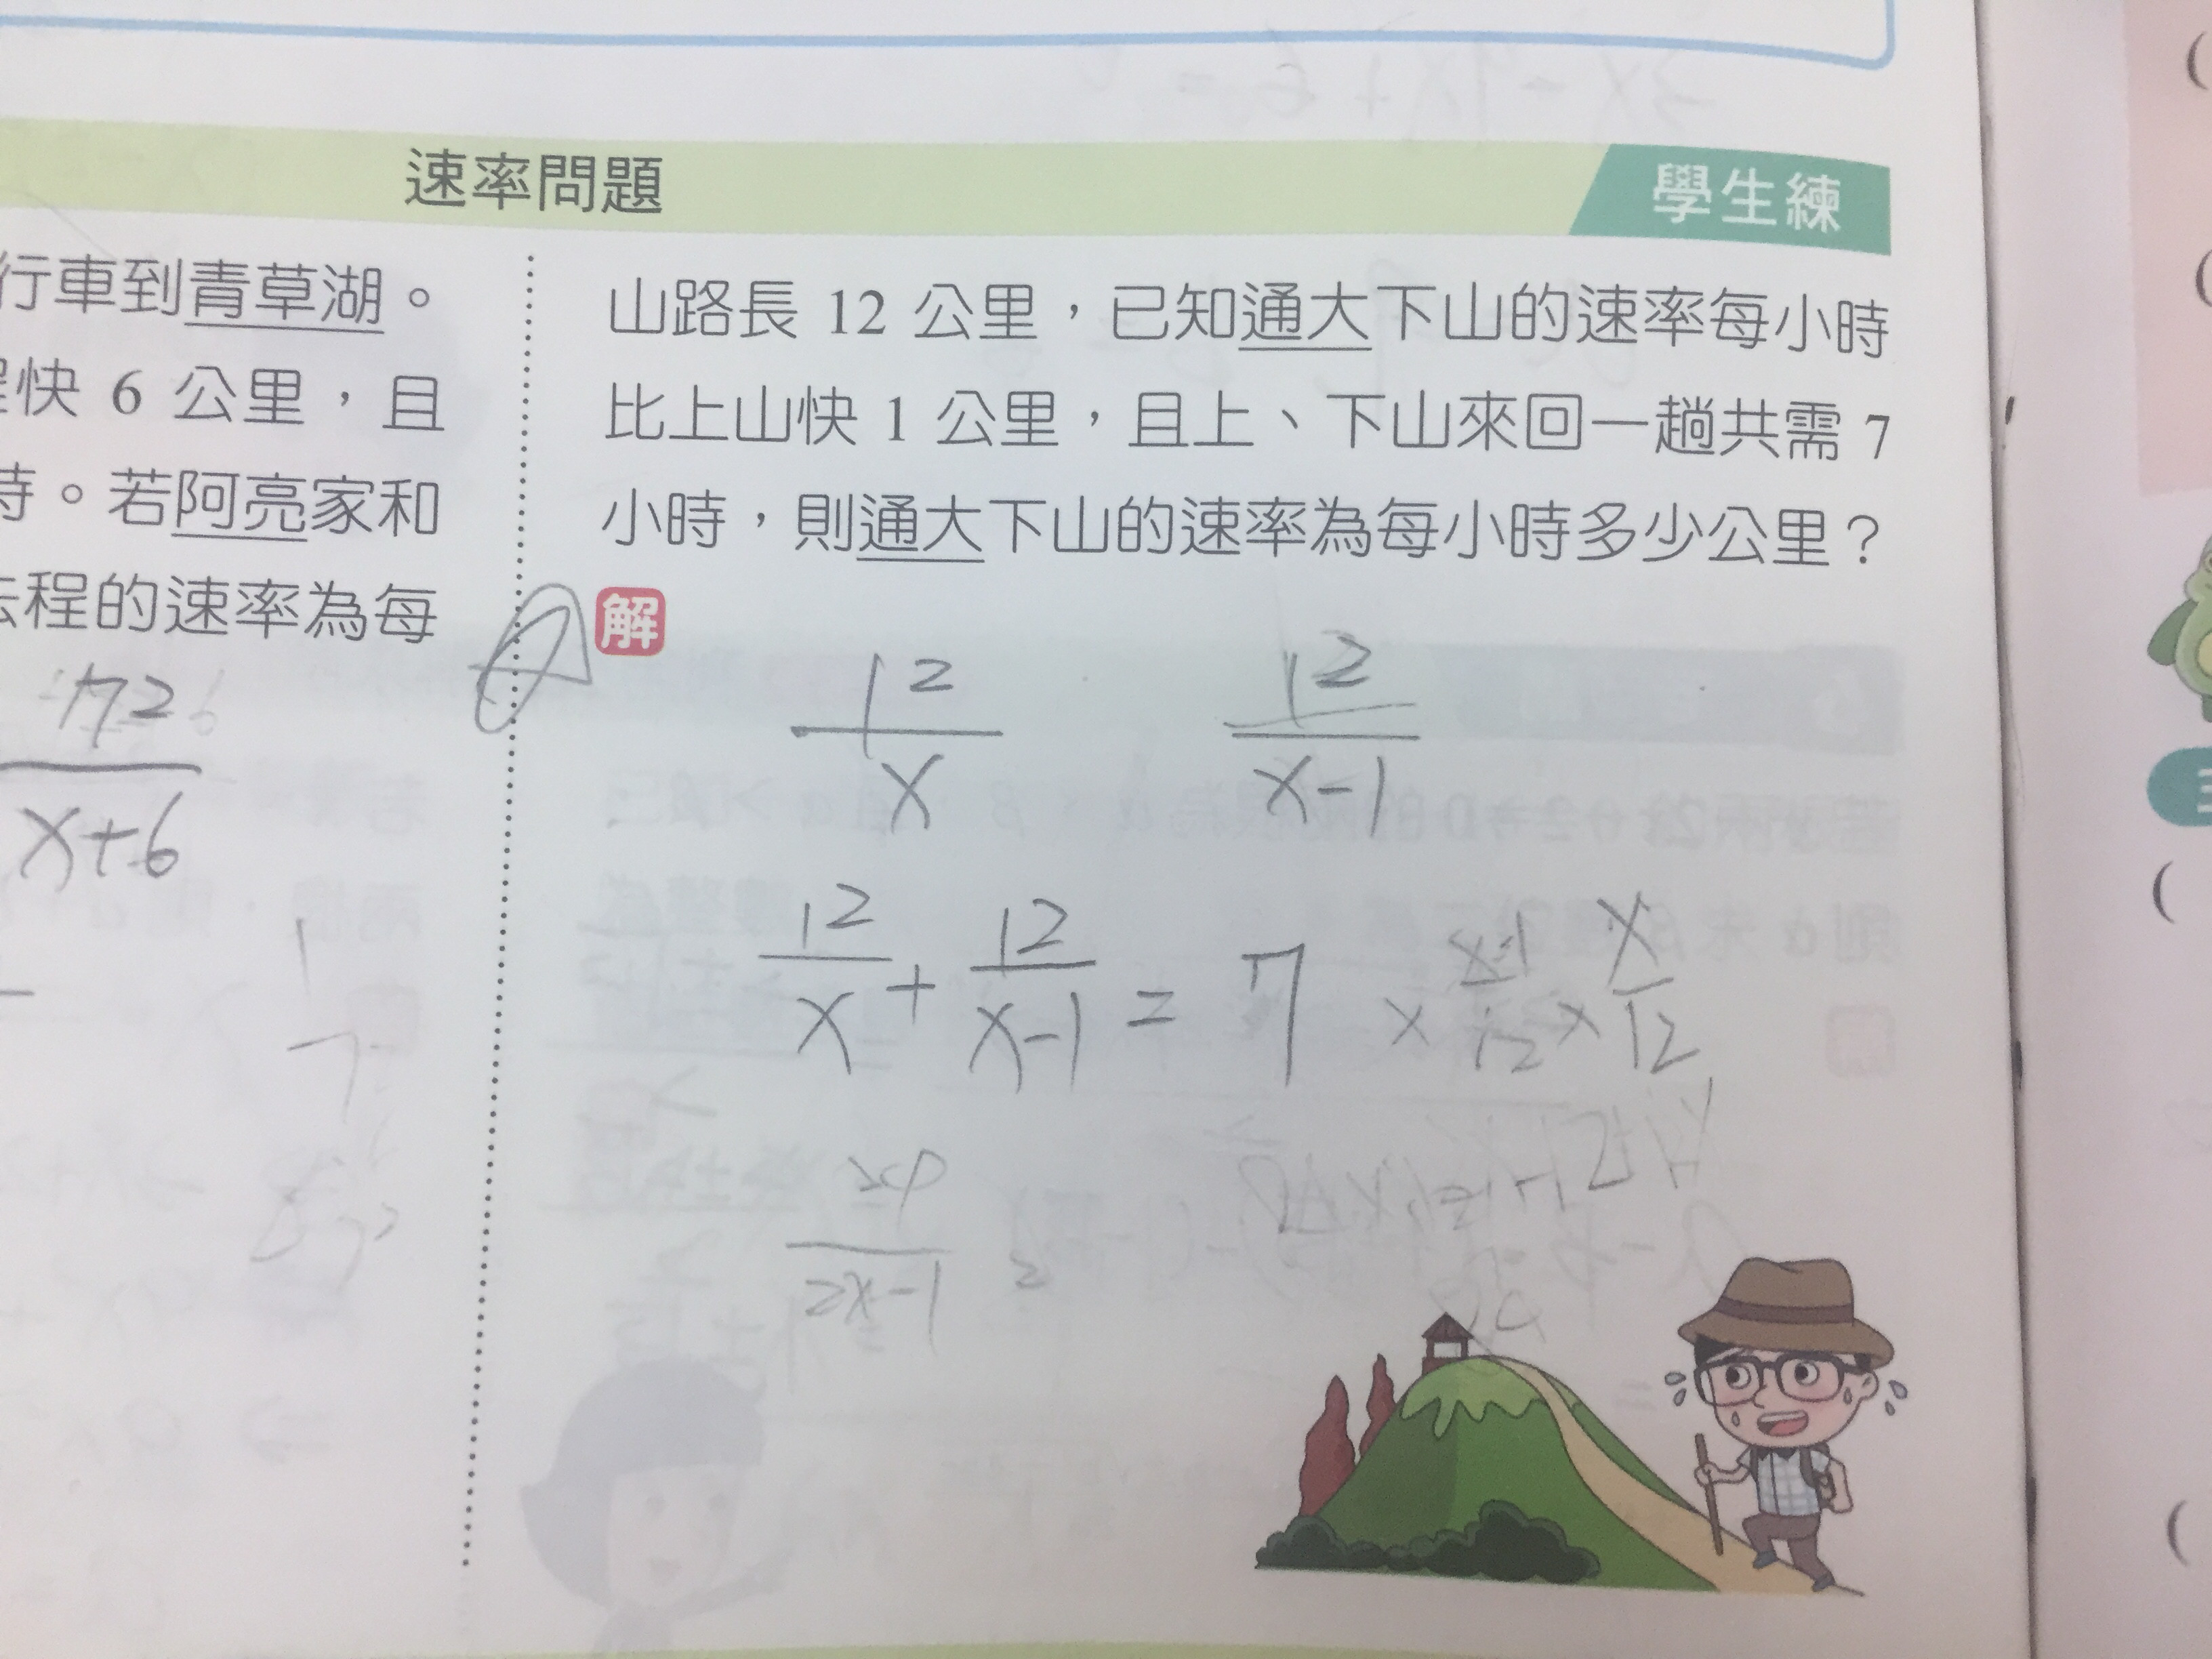 速率問題
學生練
行車到青草湖。
快 6 公里，且
時。若阿亮家和
程的速率為每
72
x+6
山路長 12 公里，已知通大下山的速率每小時
比上山快 1 公里，且上、下山來回一趟共需 7
小時，則通大下山的速率為每小時多少公里？
解
12/x 12/x-1
12/x + 12/x-1 = 7 × x-1/12 × x/12
2x-1 =